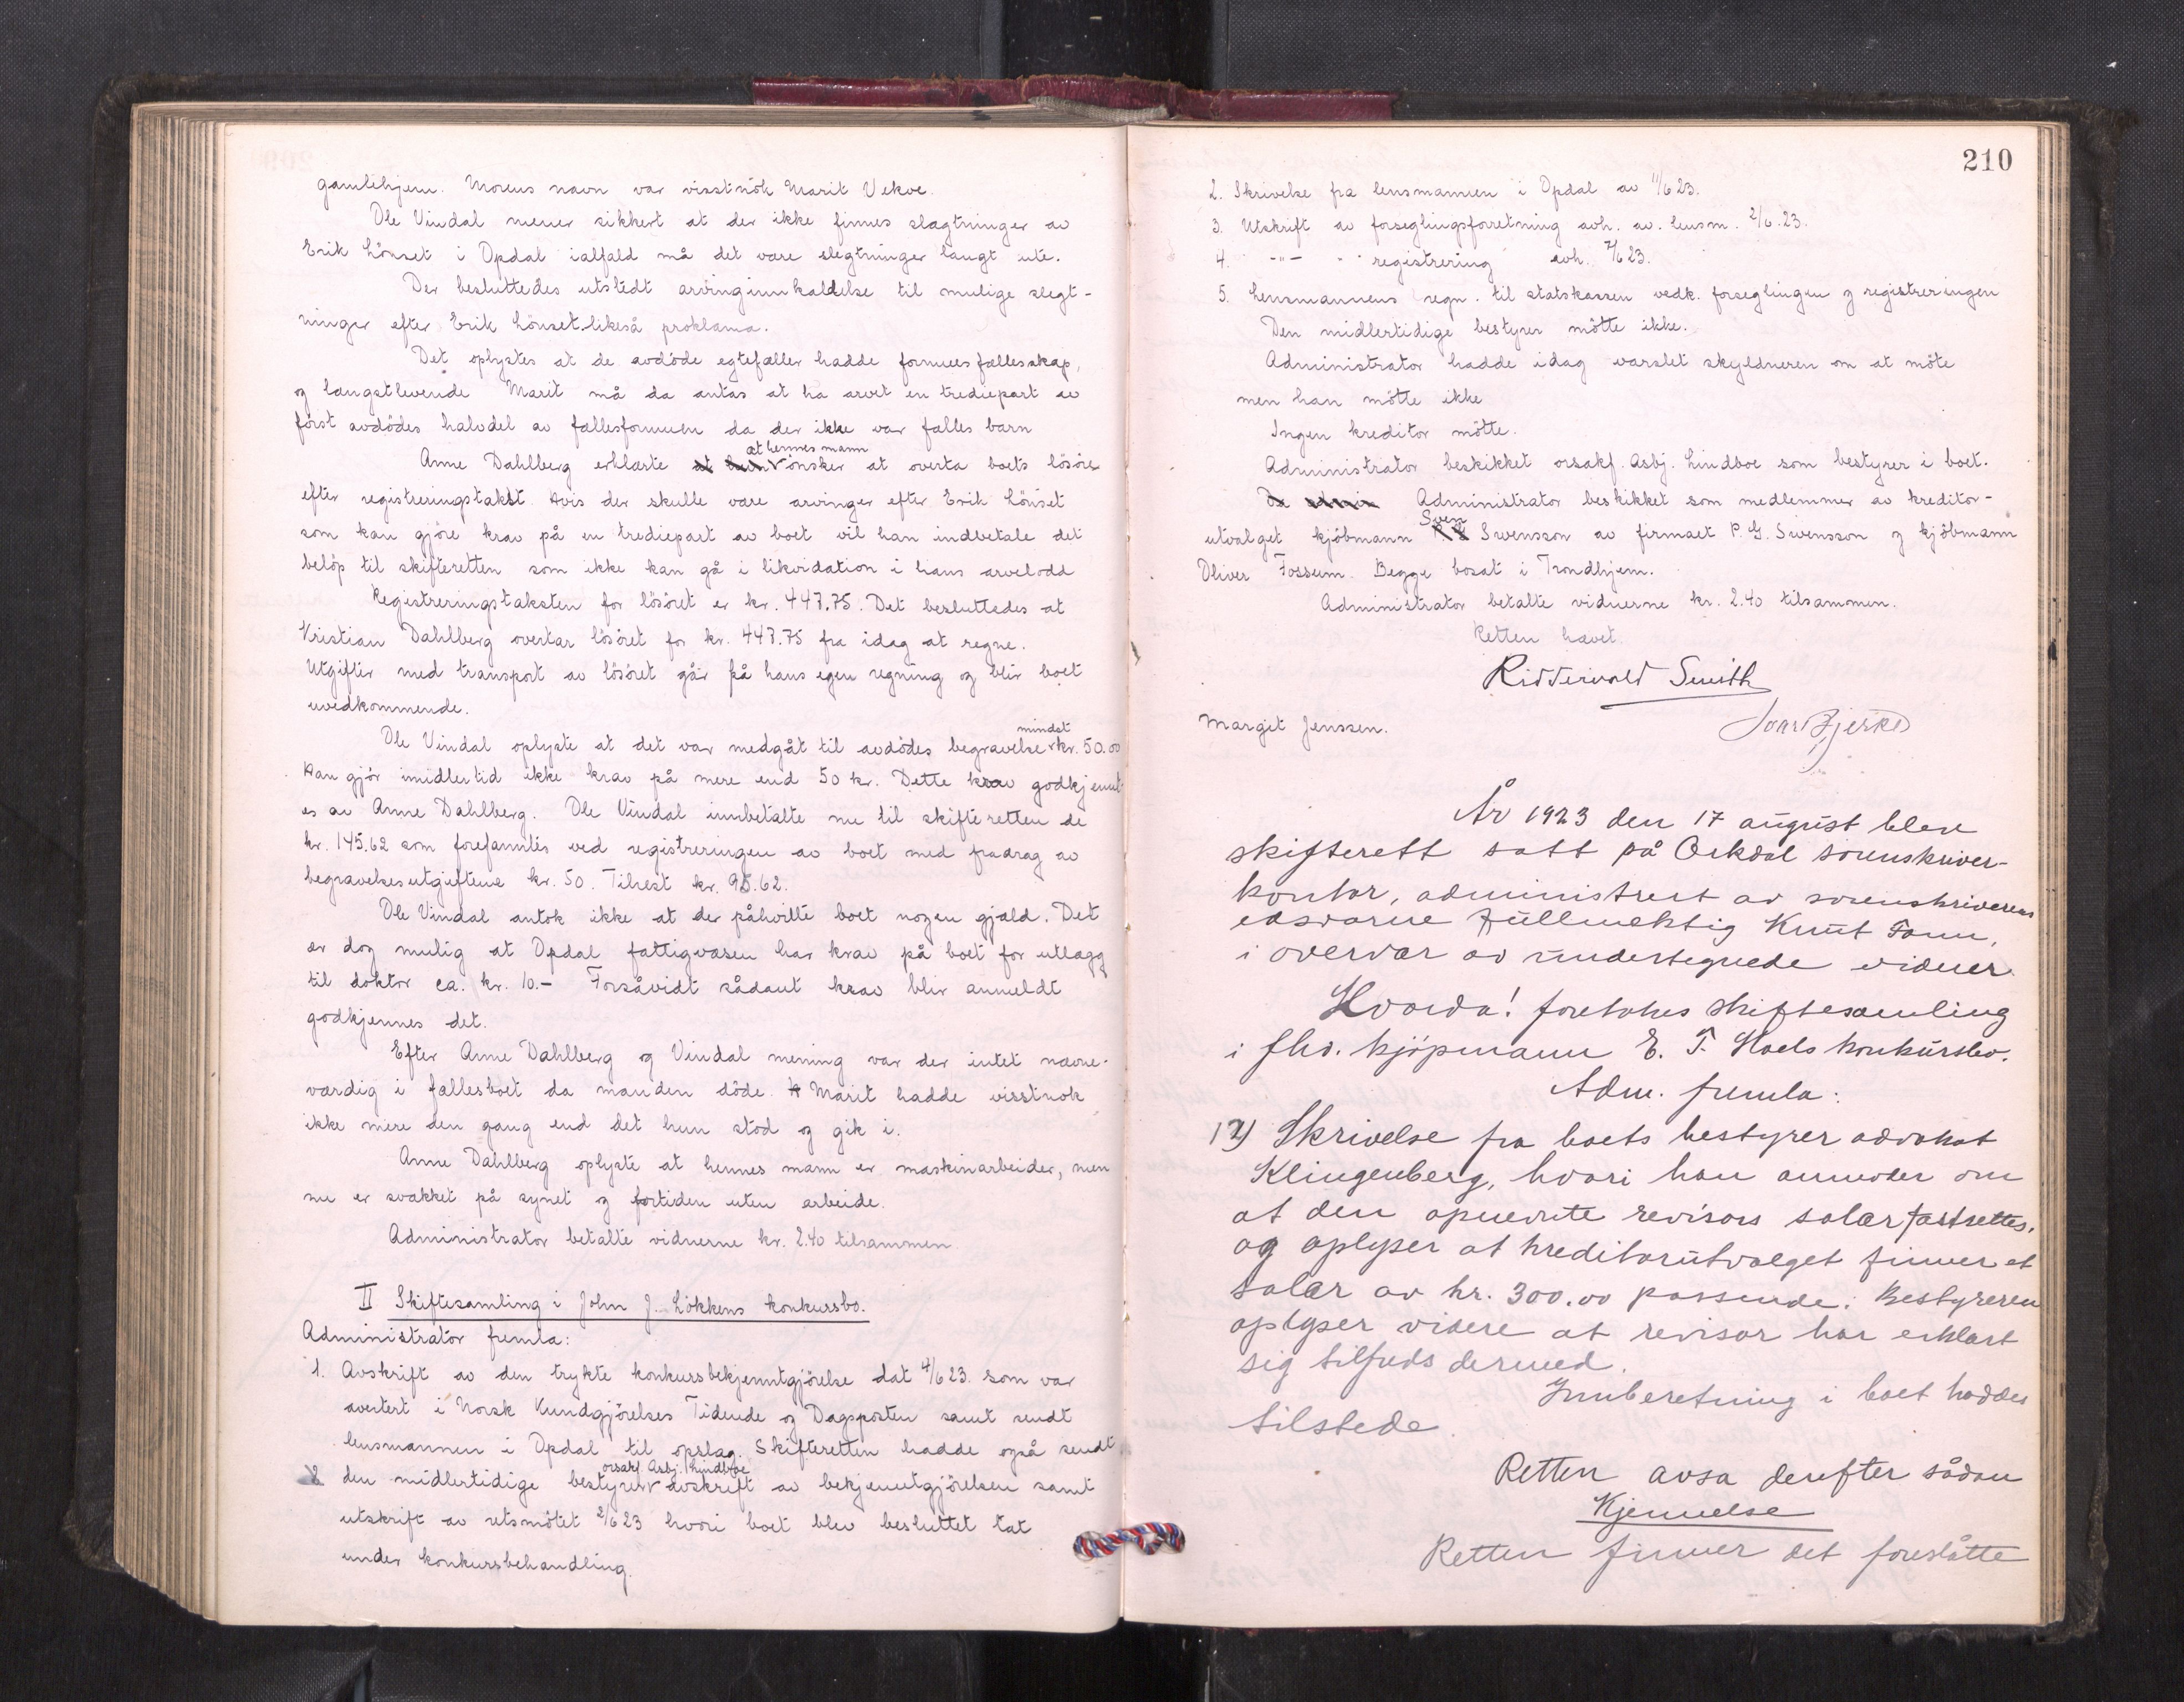 gamlehjem. Morens navn var visstnok Marit Vekve.
Ole Vindal mener sikkert at der ikke finnes slagtninger av
Erik Lönset i Opdal ialfald må det være slegtninger langt ute.
Der besluttedes utstedt arvinginnkaldelse til mulige slegt-
ninger efter Erik Lönset likeså proklama.
Det oplystes at de avdöde egtefæller hadde formuesfællesskap,
og længstlevende Marit må da antas at ha arvet en trediepart av
först avdödes halvdel av fællesformuen da der ikke var fælles barn
Anne Dahlberg erklærte at hennes mann önsker at overta boets lösöre
efter registreringstakst. Hvis der skulle være arvinger efter Erik Lönset
som kan gjöre krav på en trediepart av boet vil han indbetale det
belöp til skifteretten som ikke kan gå i likvidation i hans arvelodd
Registreringstaksten for lösöret er kr. 447.75. Det besluttedes at
Kristian Dahlberg overtar lösöret for kr. 447.75 fra idag at regne.
Utgifter med transport av lösöret går på hans egen regning og blir boet
uvedkommende.
Ole Vindal oplyste at det var medgåt til avdödes begravelse mindst kr. 50.00
Han gjör imidlertid ikke krav på mere end 50 kr. Dette krav godkjent-
es av Anne Dahlberg. Ole Vindal innbetalte nu til skifteretten de
kr. 145.62 som forefantes ved registreringen av boet med fradrag av
begravelsesutgiftene kr. 50. Tilrest kr. 95.62.
Ole Vindal antok ikke at der påhvilte boet nogen gjæld. Det
er dog mulig at Opdal fattigvæsen har krav på boet for utlægg
til doktor ca. kr. 10.- Forsåvidt sådant krav blir anmeldt
godkjennes det.
Efter Anne Dahlberg og Vindal mening var der intet nævne-
værdig i fællesboet da manden döde. Marit hadde visstnok
ikke mere den gang end det hun stod og gik i.
Anne Dahlberg oplyste at hennes mann er maskinarbeider, men
nu er svækket på synet og fortiden uten arbeide.
Administrator betalte vidnerne kr. 2.40 tilsammen.
II Skiftesamling i John J. Lökkens konkursbo.
Administrator fremla:
1. Avskrift av den trykte konkursbekjenntgjörelse dat 4/6 23. som var
avertert i Norsk Kundgjörelses Tidende og Dagsposten samt sendt
lensmannen i Opdal til opslag. Skifteretten hadde også sendt
den midlertidige bestyrer orsakf. Asbj. Lindboe avskrift av bekjenntgjörelsen samt
utskrift av retsmötet 2/6 23 hvori boet blev besluttet tat
under konkursbehandling.
210
2. Skrivelse fra lensmannen i Opdal av 11/6 23.
3. Utskrift av forseglingsforretning avh. av. lensm. 2/6.23.
4. -"- " registrering avh. 7/6 23.
5. Lensmannens regn. til statskassen vedk. forseglingen og registreringen
Den midlertidige bestyrer mötte ikke.
Administrator hadde idag varslet skyldneren om at möte
men han mötte ikke
Ingen kreditor mötte.
Administrator beskikket orsakf. Asbj. Lindboe som bestyrer i boet.
Administrator beskikket som medlemmer av kreditor-
utvalget kjöbmann Sven Svensson av firmaet P. G. Svensson og kjöbmann
Oliver Fossum. Begge bosat i Trondhjem.
Administrator betalte vidnerne kr. 2.40 tilsammen.
Retten hævet.
Riddervold Smith
Margit Jenssen.
Ivar Bjerke
År 1923 den 17 august blev
skifterett satt på Orkdal sorenskriver-
kontor, administrert av sorenskriverens
edsvorne fullmektig Knut Fonn,
i overvær av undertegnede vidner.
Hvorda! foretokes skiftesamling
i fhv. kjøpmann E. T. Hoels konkursbo.
Adm. fremla:
1) Skrivelse fra boets bestyrer advokat
Klingenberg, hvori han anmoder om
at den opnevnte revisors salær fastsettes,
og oplyser at kreditorutvalget finner et
salær av kr. 300.00 passende. Bestyreren
oplyser videre at revisor har erklært
sig tilfreds dermed.
Innberetning i boet haddes
tilstede.
Retten avsa derefter sådan
Kjennelse
Retten finner det foreslåtte